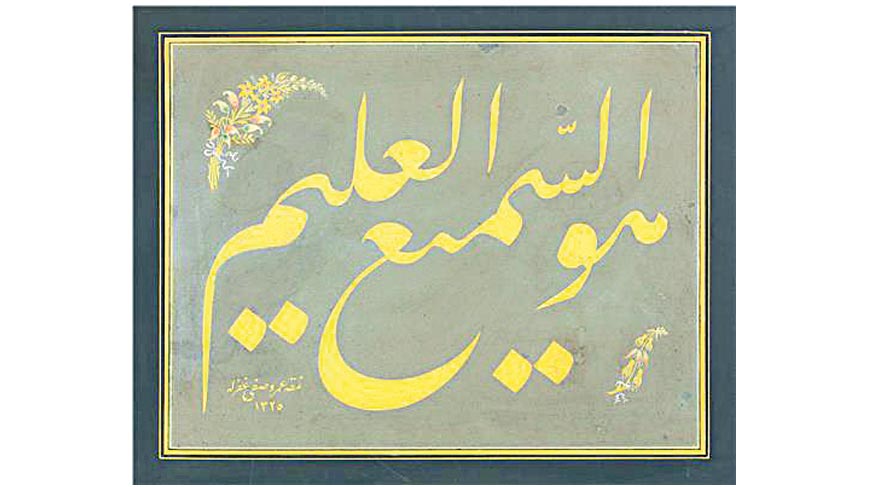 هو السّميع العليم
نمقه عمر وصفى غفرله
١٣٢٥